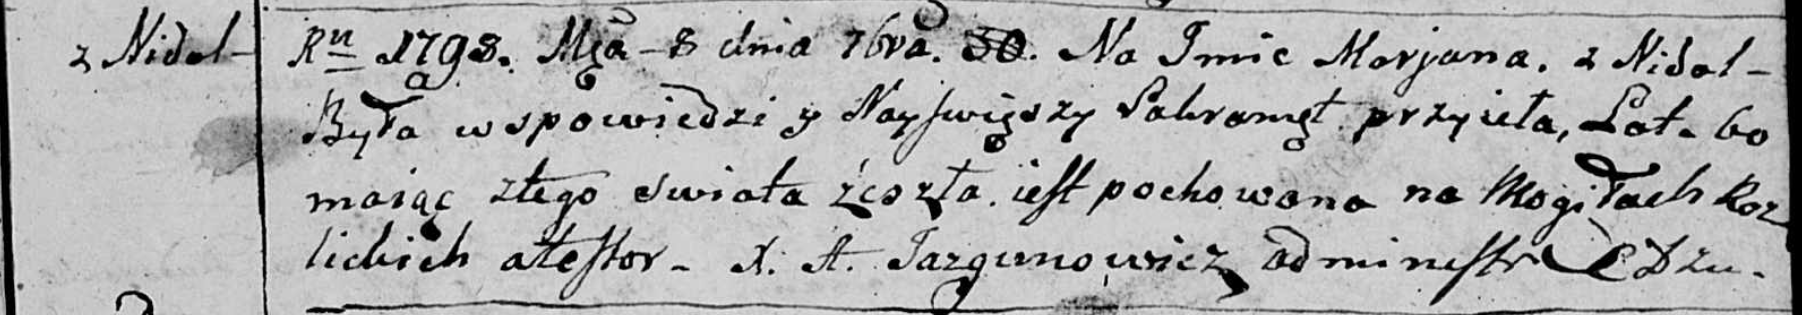 z Nidal-
Ru 1798. Mca - 8 dnia 7bra. 30. Na Imie Marjana. z Nidal-
Była w spowiedzi y Nayswięszy Sakramęt przyieła, Lat. 60
maiąc ztego swiata zeszła. iest pochowana na Mogiłach Roz
lickich atestor - X. A. Jazgunowicz administr C Dzu.